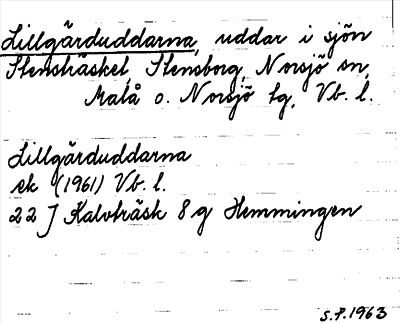 Lillgärduddarna, uddar i sjön
Stensträsket, Stensborg, Norsjö sn,
Malå o. Norsjö tg, Vb. l.
Lillgärduddarna
ek (1961) Vb. l.
22 J Kalvträsk 8 g Hemmingen
S.P. 1963